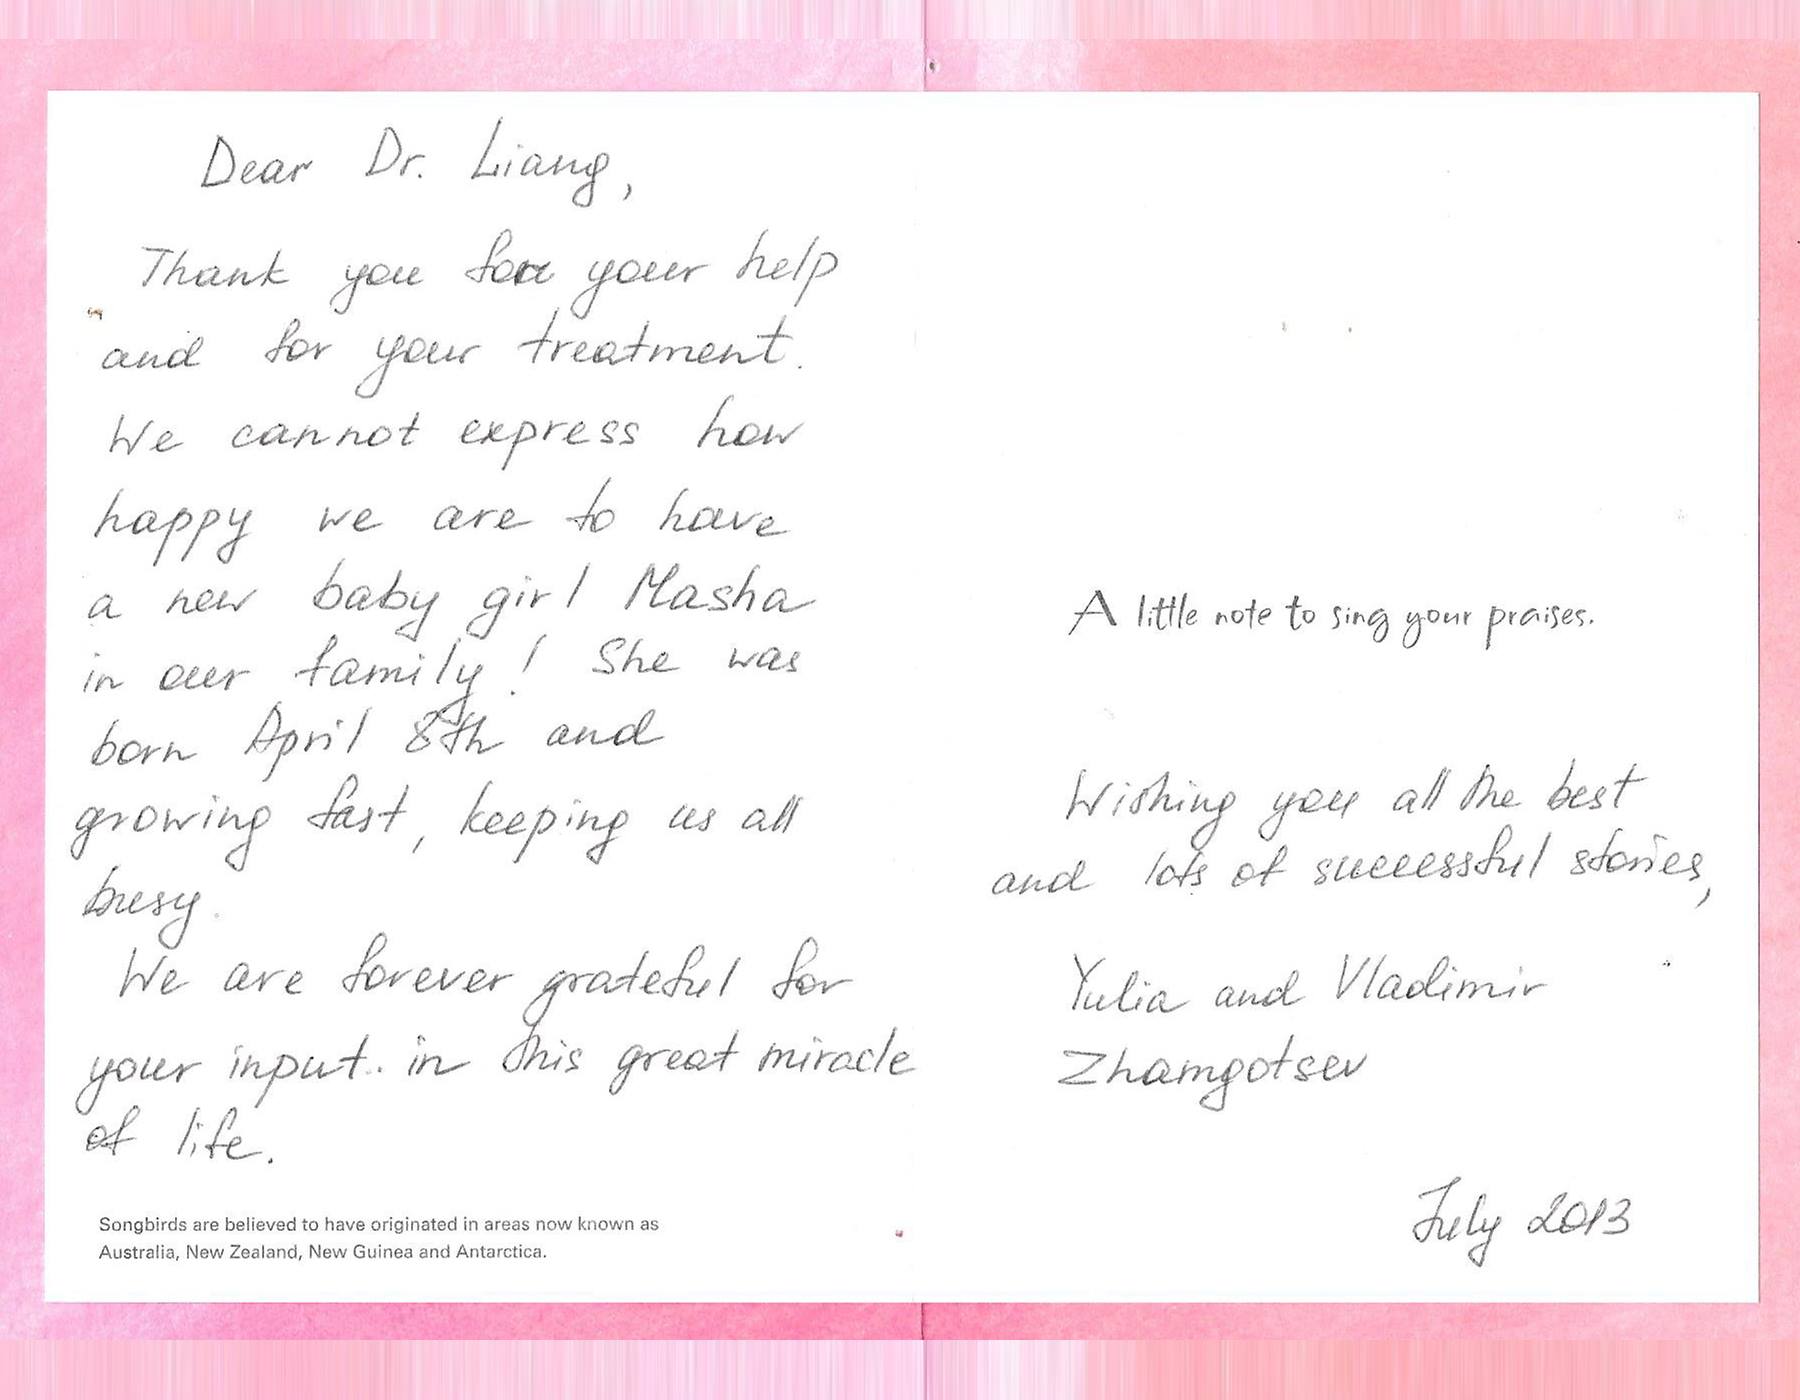 Dear Dr. Liang,
Thank you for your help
and for your treatment.
We cannot express how
happy we are to have
a new baby girl Masha
in our family! She was
born April 8th and
growing fast, keeping us all
busy.
We are forever grateful for
your input. in this great miracle
of life.
Songbirds are believed to have originated in areas now known as
Australia, New Zealand, New Guinea and Antarctica.
A little note to sing your praises.
Wishing you all the best
and lots of successful stories,
Yulia and Vladimir
Zhamgotsev
July 2013